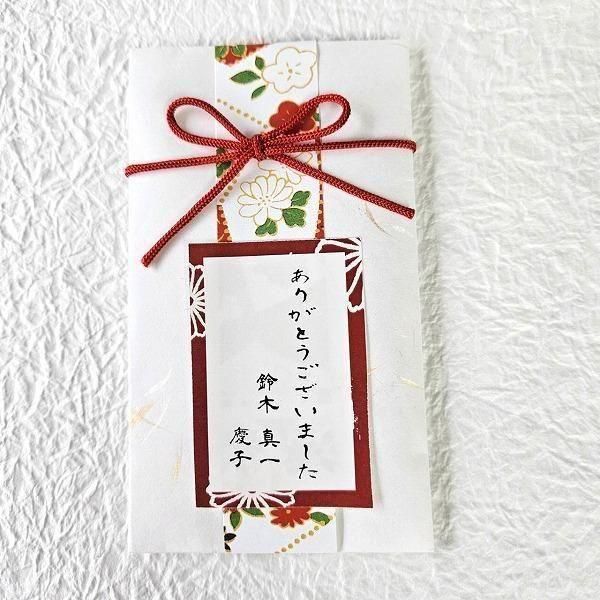 ありがとうございました
鈴木 真一
慶子